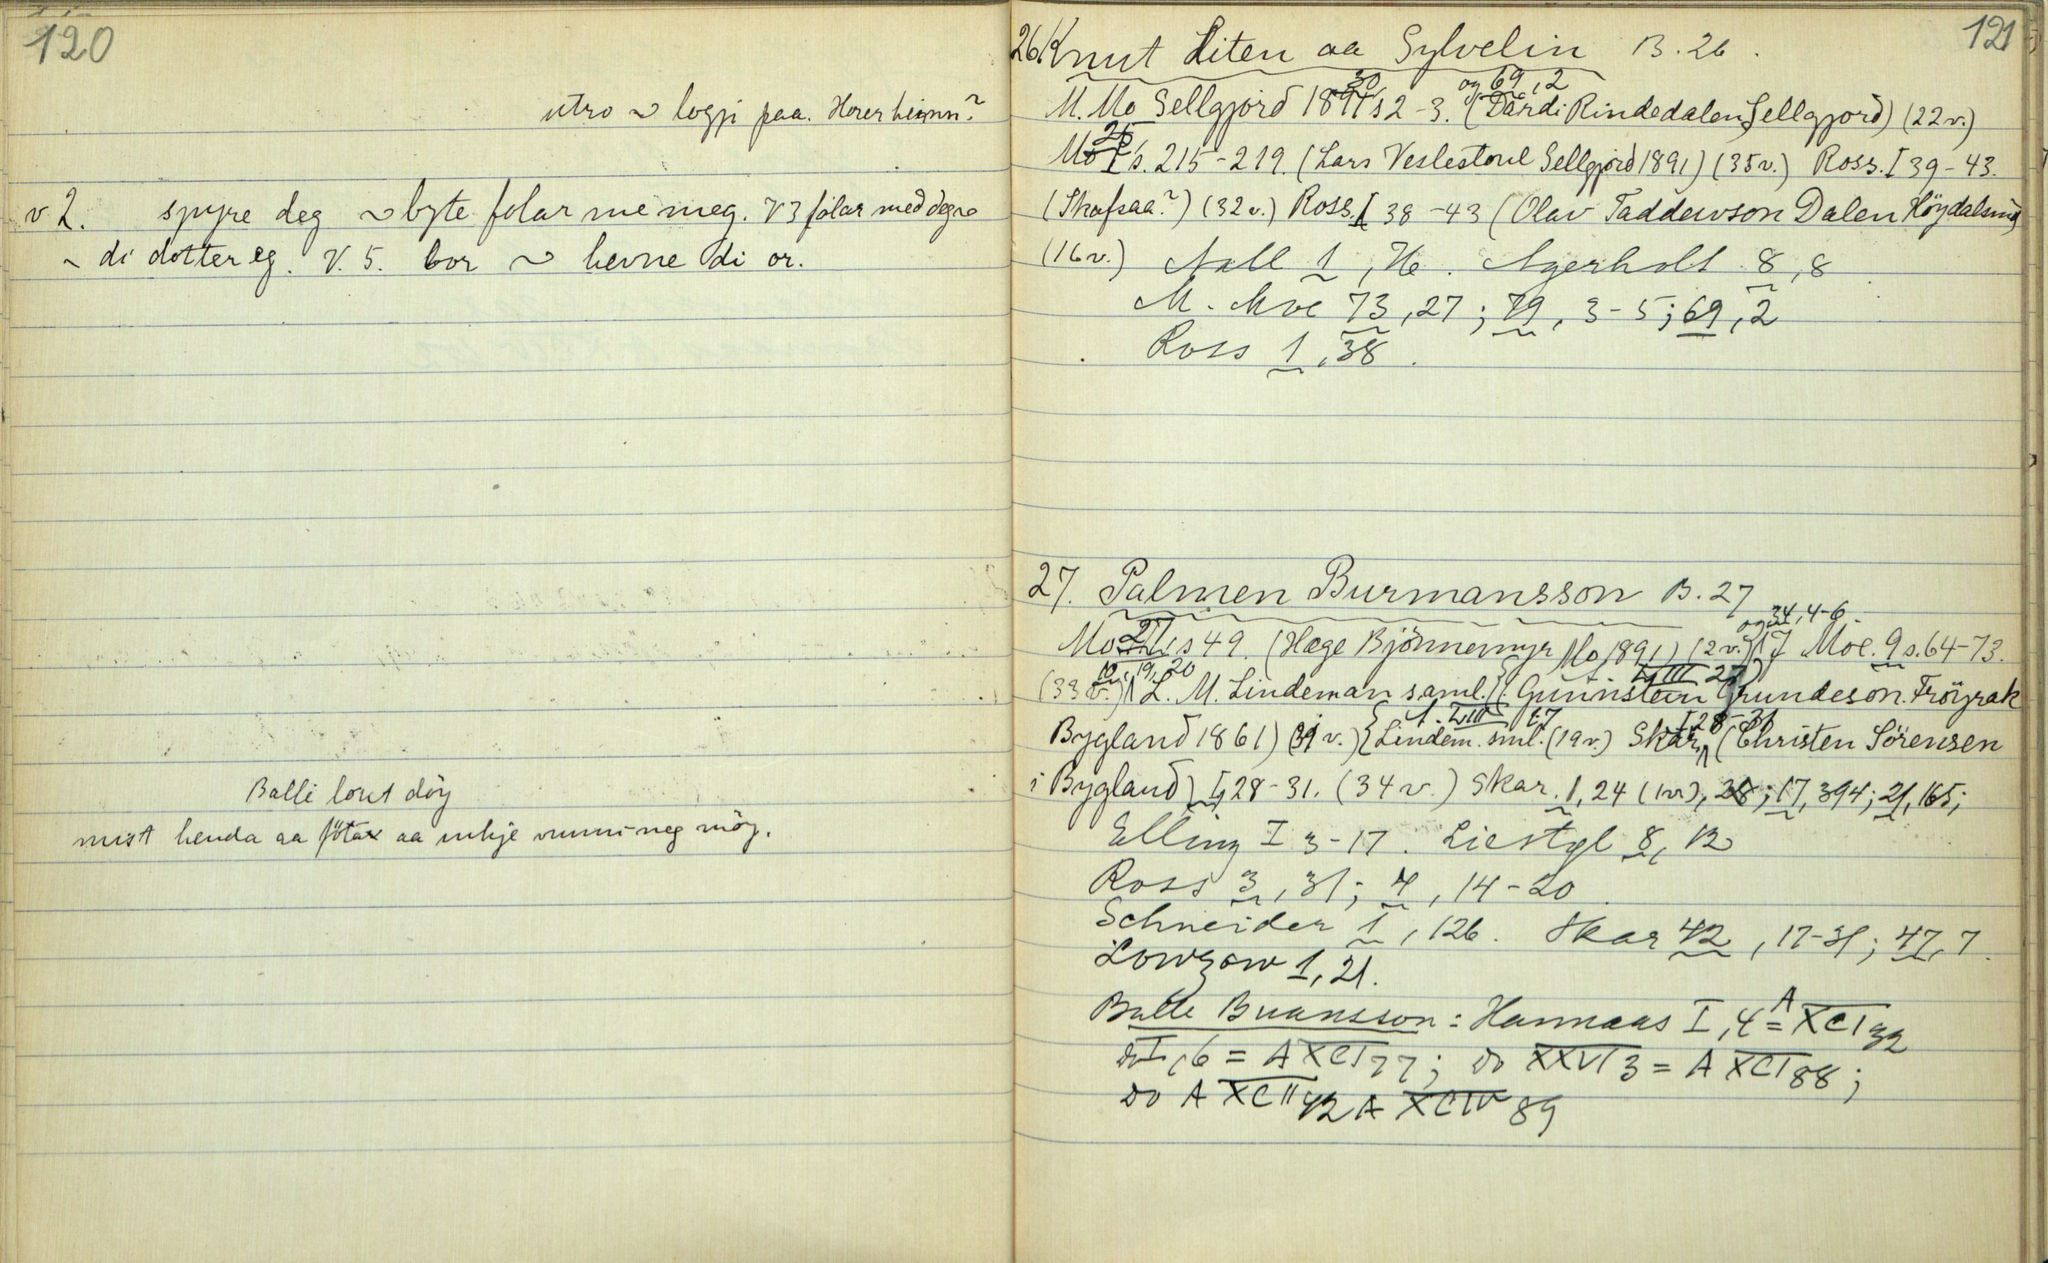 120
utro ~ logji paa.
v 2. spyre deg ~ byte folar me meg. V 3 folar med degre
~ di dotter eg. V. 5. bor ~ hevne di or.
Balli lout döy
mist henda aa fötax aa inkje vunni meg möy.
121
26 Knut Liten aa Sylvelin B. 26.
30 og 69, 2
M. Mo Sellgjord 1891 s 2-3. (Dardi Rindedalen, Sellgjord) (22 v.)
26
Mo I s. 215-219. (Lars Veslestoul Sellgjord 1891) (35 v.) Ross. I 39-43.
(Skafsaa?) (32 v.) Ross. I 38-43 (Olav Taddewson Dalen Höydalsmo)
(16 v.) Aall 1, 76. Agerholt 8, 8
M. Moe 73, 27; 79, 3-5; 69, 2
Ross 1, 38.
27. Palmen Burmansson B. 27
og 34, 4-6.
Mo 27 s 49. (Hæge Björnemyr Mo 1891) (2 v.) J Moe. 9 s. 64-73.
10, 19, 20 LIII 27
(33 v.) L. M. Lindeman saml. (Gunnstein Grundeson. Fröyrak
A. LIII 67 I 28-31
Bygland 1861) (31 v.) Lindem. sml. (19 v.) Skar (Christen Sörensen
i Bygland) I, 28-31. (34 v.) Skar. 1, 24 (1 v.), 28; 17, 394; 21, 165;
Elling I 3-17. Liestøl 8, 12
Ross 3, 31; 4, 14-20.
Schneider 1, 126. Skar 42, 17-31; 47, 7.
Lowzow 1, 21.
Balle Buansson: Hannaas I, 4 = A XCI 32
do I, 6 = A XCI 77; do XXVI 3 = A XCI 88;
do A XCII 42 A XCIV 89